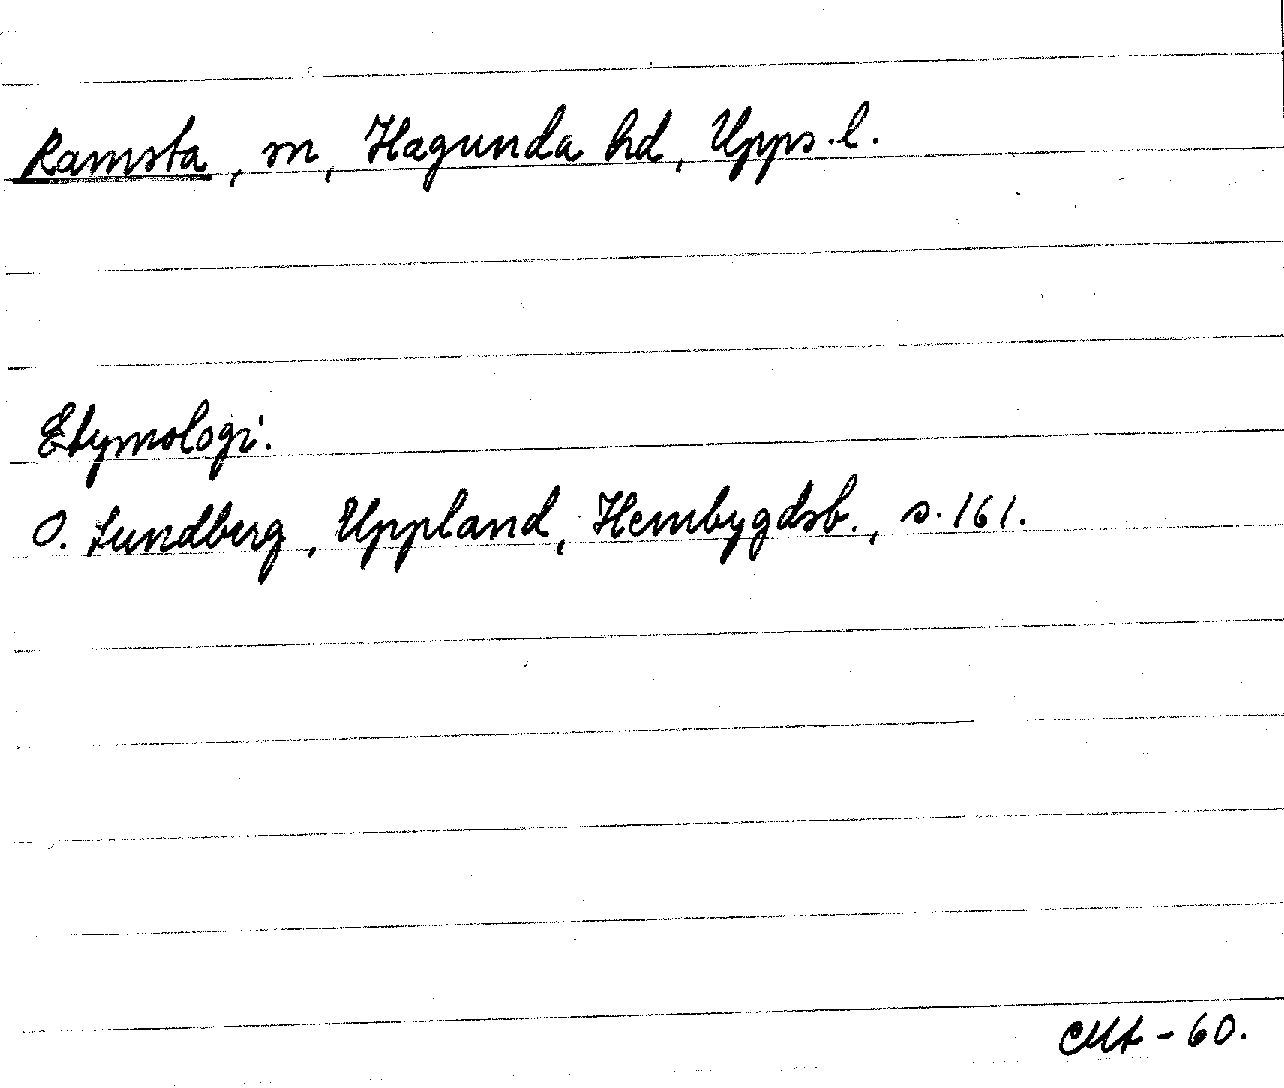 Ramsta, sn, Hagunda hd, Upps. l.
Etymologi.
O. Lundberg, Uppland, Hembygdsb., s. 161.
- 60.